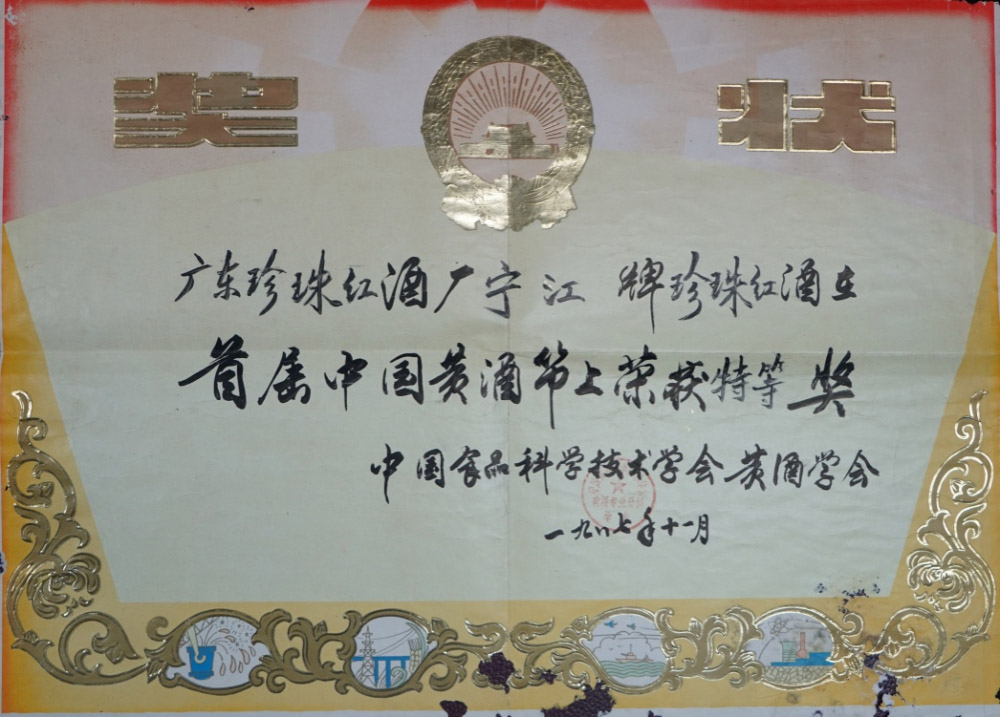 奖状
广东珍珠红酒厂宁江 牌珍珠红酒在
首届中国黄酒节上荣获特等奖
中国食品科学技术学会黄酒学会
一九八七年十一月